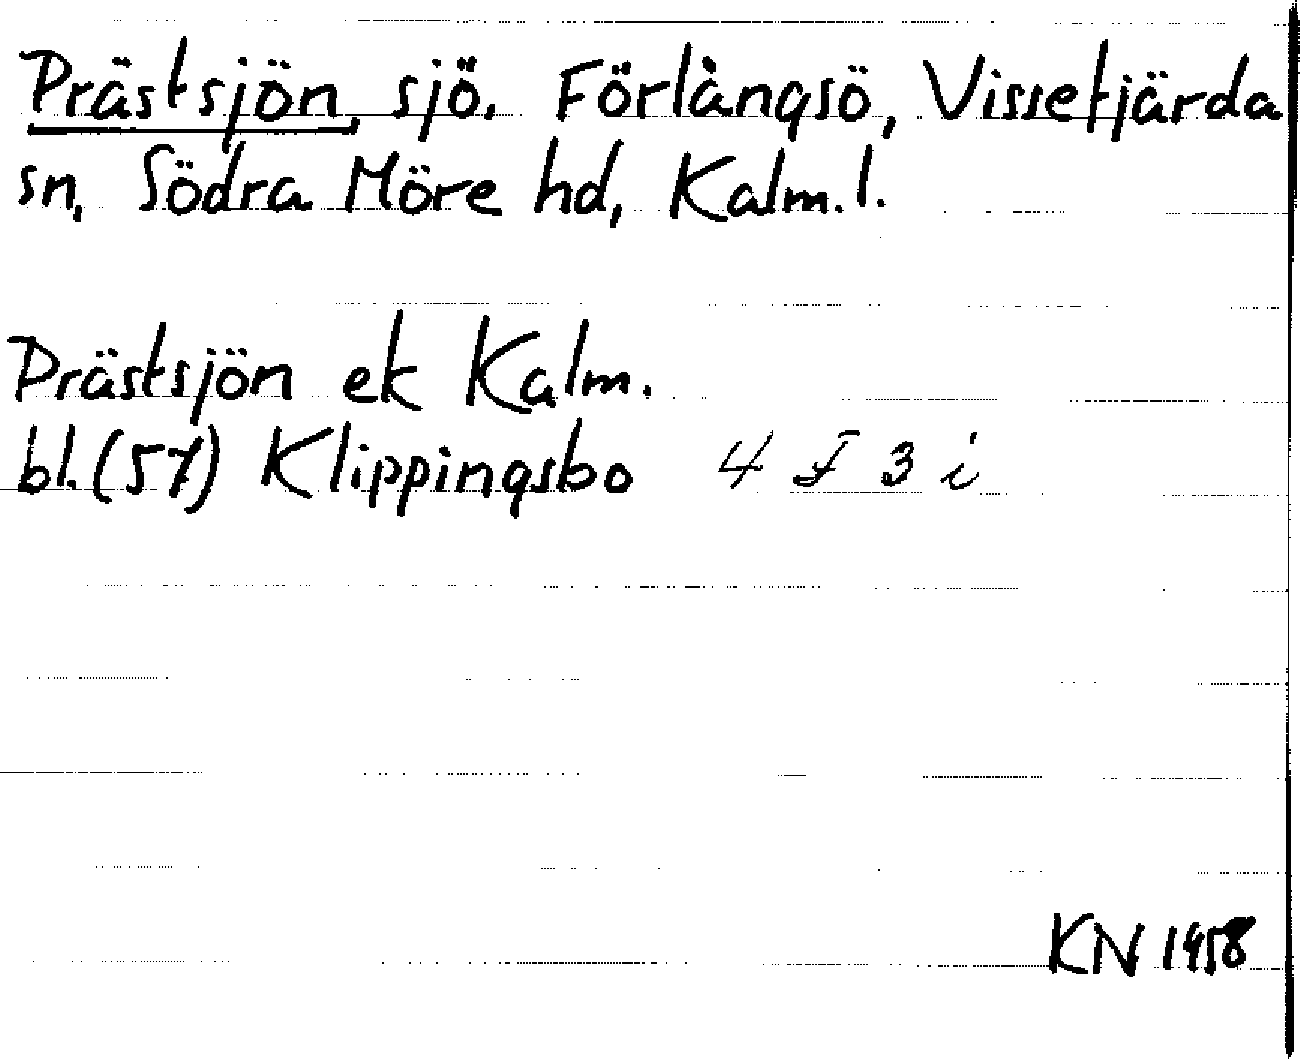 Prästsjön, sjö. Förlångsö, Vissefjärda
sn, Södra Möre hd, Kalm. l.
Prästsjön ek Kalm.
bl. (57) Klippingsbo 4 F 3 i
KN 1958